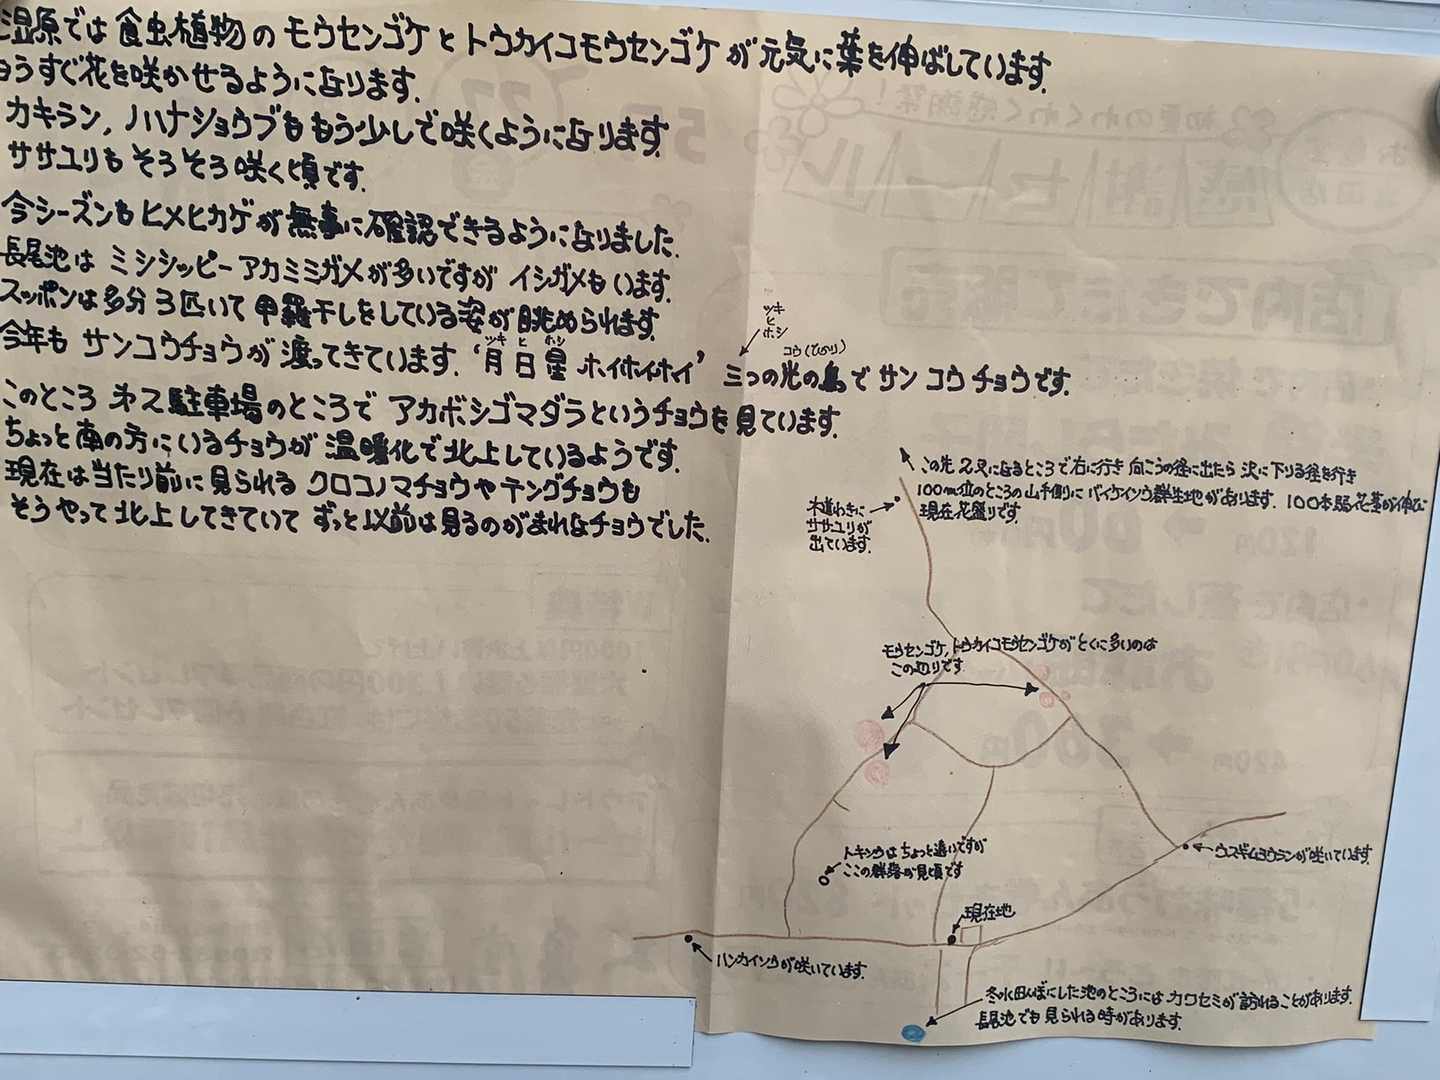 湿原では食虫植物のモウセンゴケとトウカイコモウセンゴケが元気に葉を伸ばしています。
もうすぐ花を咲かせるようになります。
カキラン,ノハナショウブももう少しで咲くようになります。
ササユリもそろそろ咲く頃です。
今シーズンもヒメヒカゲが無事に確認できるようになりました。
長尾池はミシシッピーアカミミガメが多いですがイシガメもいます。
スッポンは多分3匹いて甲羅干しをしている姿が眺められます。
ツキ
ヒ
ホシ
ツキ ヒ ホシ
コウ(ひかり)
今年もサンコウチョウが渡ってきています。‘月日星ホイホイホイ’ 三つの光の鳥でサンコウチョウです。
このところ 駐車場のところでアカボシゴマダラというチョウを見ています。
ちょっと南の方にいるチョウが温暖化で北上しているようです。
現在は当たり前に見られるクロコノマチョウやテングチョウも
そうやって北上してきていてずっと以前は見るのがまれなチョウでした。
この先2又になるところで右に行き向こうの径に出たら沢に下りる径を行き
100m位のところの山手側にバイケイソウ群生地があります。100本弱花茎が伸び
現在花盛りです。
木道わきに
ササユリが
出ています。
モウセンゴケ,トウカイコモウセンゴケがとくに多いのは
この辺りです。
トキソウはちょっと遠いですが
ここの群落が見頃です
ウスギムヨウランが咲いています。
現在地
ハンカイソウが咲いています。
冬水田んぼにした池のところにはカワセミが訪れることがあります。
長尾池でも見られる時があります。